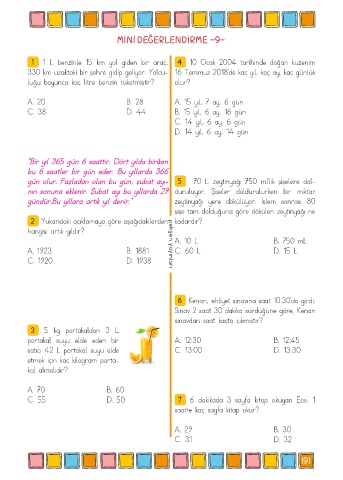 MİNİ DEĞERLENDİRME -9-
1 1 L benzinle 15 km yol giden bir araç,
330 km uzaktaki bir şehre gidip geliyor. Yolcu-
luğu boyunca kaç litre benzin tüketmiştir?
A. 20 B. 28
C. 38 D. 44
"Bir yıl 365 gün 6 saattir. Dört yılda biriken
bu 6 saatler bir gün eder. Bu yıllarda 366
gün olur. Fazladan olan bu gün, şubat ayı-
nın sonuna eklenir. Şubat ayı bu yıllarda 29
gündür.Bu yıllara artık yıl denir."
2 Yukarıdaki açıklamaya göre aşağıdakilerden
hangisi artık yıldır?
A. 1923 B. 1881
C. 1920 D. 1938
3 5 kg portakaldan 3 L
portakal suyu elde eden bir
satıcı 42 L portakal suyu elde
etmek için kaç kilogram porta-
kal almalıdır?
A. 70 B. 60
C. 55 D. 50
4 10 Ocak 2004 tarihinde doğan kuzenim
16 Temmuz 2018'de kaç yıl, kaç ay, kaç günlük
olur?
A. 15 yıl, 7 ay, 6 gün
B. 15 yıl, 6 ay, 16 gün
C. 14 yıl, 6 ay, 6 gün
D. 14 yıl, 6 ay, 14 gün
5 70 L zeytinyağı 750 mL'lik şişelere dol-
duruluyor. Şişeler doldurulurken bir miktar
zeytinyağı yere dökülüyor. İşlem sonrası 80
şişe tam dolduğuna göre dökülen zeytinyağı ne
kadardır?
A. 10 L B. 750 mL
C. 60 L D. 15 L
6 Kenan, ehliyet sınavına saat 10.30'da girdi.
Sınav 2 saat 30 dakika sürdüğüne göre, Kenan
sınavdan saat kaçta çıkmıştır?
A. 12:30 B. 12:45
C. 13:00 D. 13:30
7 6 dakikada 3 sayfa kitap okuyan Ece, 1
saatte kaç sayfa kitap okur?
A. 29 B. 30
C. 31 D. 32
191